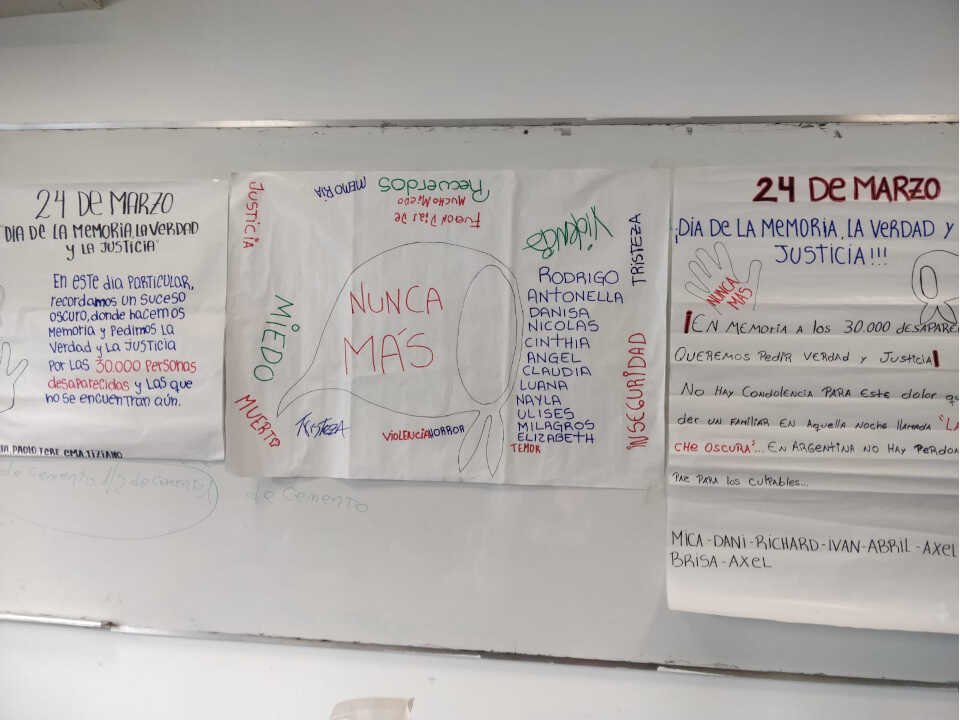 24 DE MARZO
"DIA DE LA MEMORIA, LA VERDAD
Y LA JUSTICIA"
En este dia PARTICULAR,
recordamos un suceso
oscuro, donde hacemos
Memoria y Pedimos LA
Verdad y LA JUSTICIA
POR LAS 30.000 Personas
desaparecidas y LAS que
no se encuentran aún.
PAOLO TERE EMA TIZIANO
JUSTICIA
MEMORIA
Recuerdos
Fueron Dias De
Mucho Miedo
Violencia
TRISTEZA
MIEDO
NUNCA
MÁS
RODRIGO
ANTONELLA
DANISA
NICOLAS
CINTHIA
ANGEL
CLAUDIA
LUANA
NAYLA
ULISES
MILAGROS
ELIZABETH
TEMOR
INSEGURIDAD
MUERTO
TRISTEZA
VIOLENCIA HORROR
24 DE MARZO
¡DÍA DE LA MEMORIA, LA VERDAD Y
JUSTICIA!!!
NUNCA
MÁS
¡EN MEMORIA A los 30.000 desapare
QUEREMOS Pedir VERdad y Justicia!
No Hay Condolencia PARA Este dolor qu
der un FAMILIAR EN Aquella Noche llamada "LA
CHE OSCURA"... EN ARGENTINA NO HAY PERDON
PAZ PARA los culpables...
MICA - DANI - RICHARD - IVAN - ABRIL - AXEL
BRISA - AXEL
de cemento 1/2 de cemento
de cemento